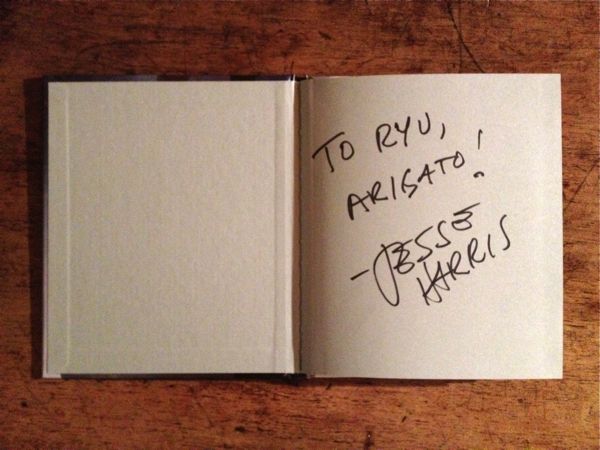 TO RYU,
ARIGATO!
-JESSE
HARRIS